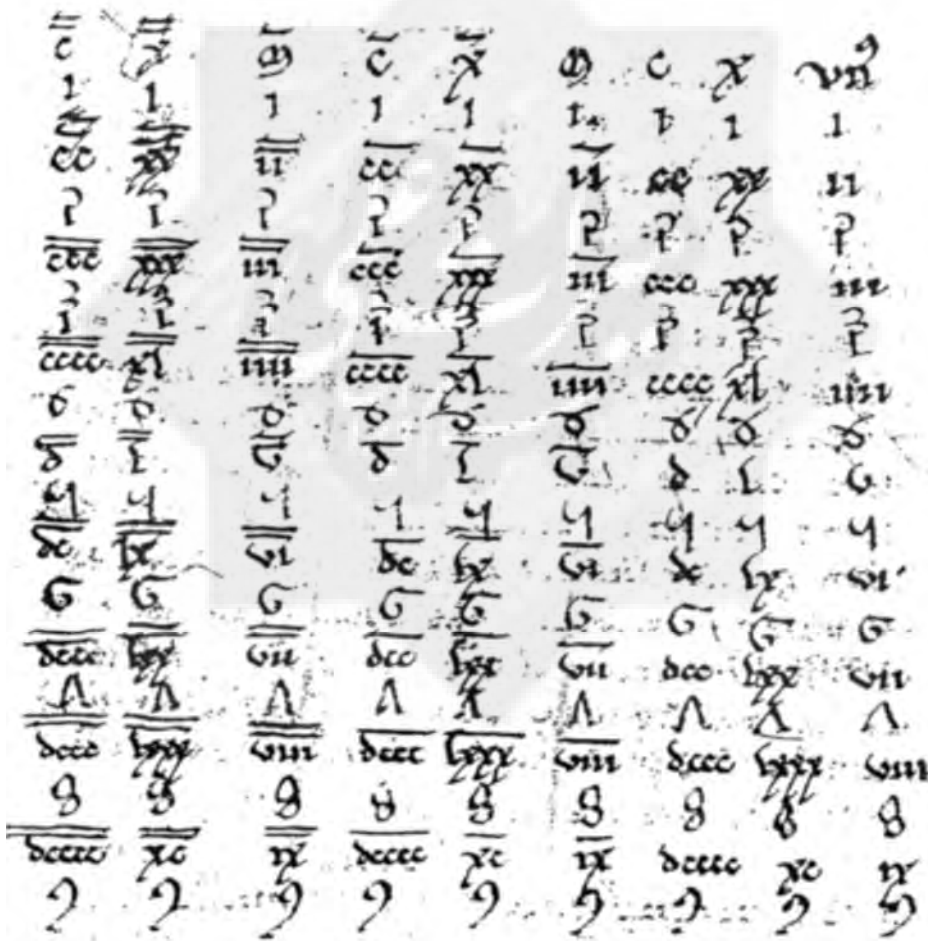 c̿ x̿ m̅ c̅ x̅ m c x vnꝰ
1 1 1 1 1 1 1 1 1
c̿c̿ x̿x̿ i̿i̿ c̅c̅ x̅x̅ i̅i̅ cc xx ii
2 2 2 2 2 2 2 2 2
c̿c̿c̿ x̿x̿x̿ i̿i̿i̿ c̅c̅c̅ x̅x̅x̅ i̅i̅i̅ ccc xxx iii
3 3 3 3 3 3 3 3 3
c̿c̿c̿c̿ x̿l̿ i̿i̿i̿i̿ c̅c̅c̅c̅ x̅l̅ i̅i̅i̅i̅ cccc xl iiii
4 4 4 4 4 4 4 4 4
d̿ l̿ v̿ d̅ l̅ v̅ d l v
5 5 5 5 5 5 5 5 5
d̿c̿ l̿x̿ v̿i̿ d̅c̅ l̅x̅ v̅i̅ dc lx vi
6 6 6 6 6 6 6 6 6
d̿c̿c̿ l̿x̿x̿ v̿i̿i̿ d̅c̅c̅ l̅x̅x̅ v̅i̅i̅ dcc lxx vii
7 7 7 7 7 7 7 7 7
d̿c̿c̿c̿ l̿x̿x̿x̿ v̿i̿i̿i̿ d̅c̅c̅c̅ l̅x̅x̅x̅ v̅i̅i̅i̅ dccc lxxx viii
8 8 8 8 8 8 8 8 8
d̿c̿c̿c̿c̿ x̿c̿ i̿x̿ d̅c̅c̅c̅c̅ x̅c̅ i̅x̅ dcccc xc ix
9 9 9 9 9 9 9 9 9